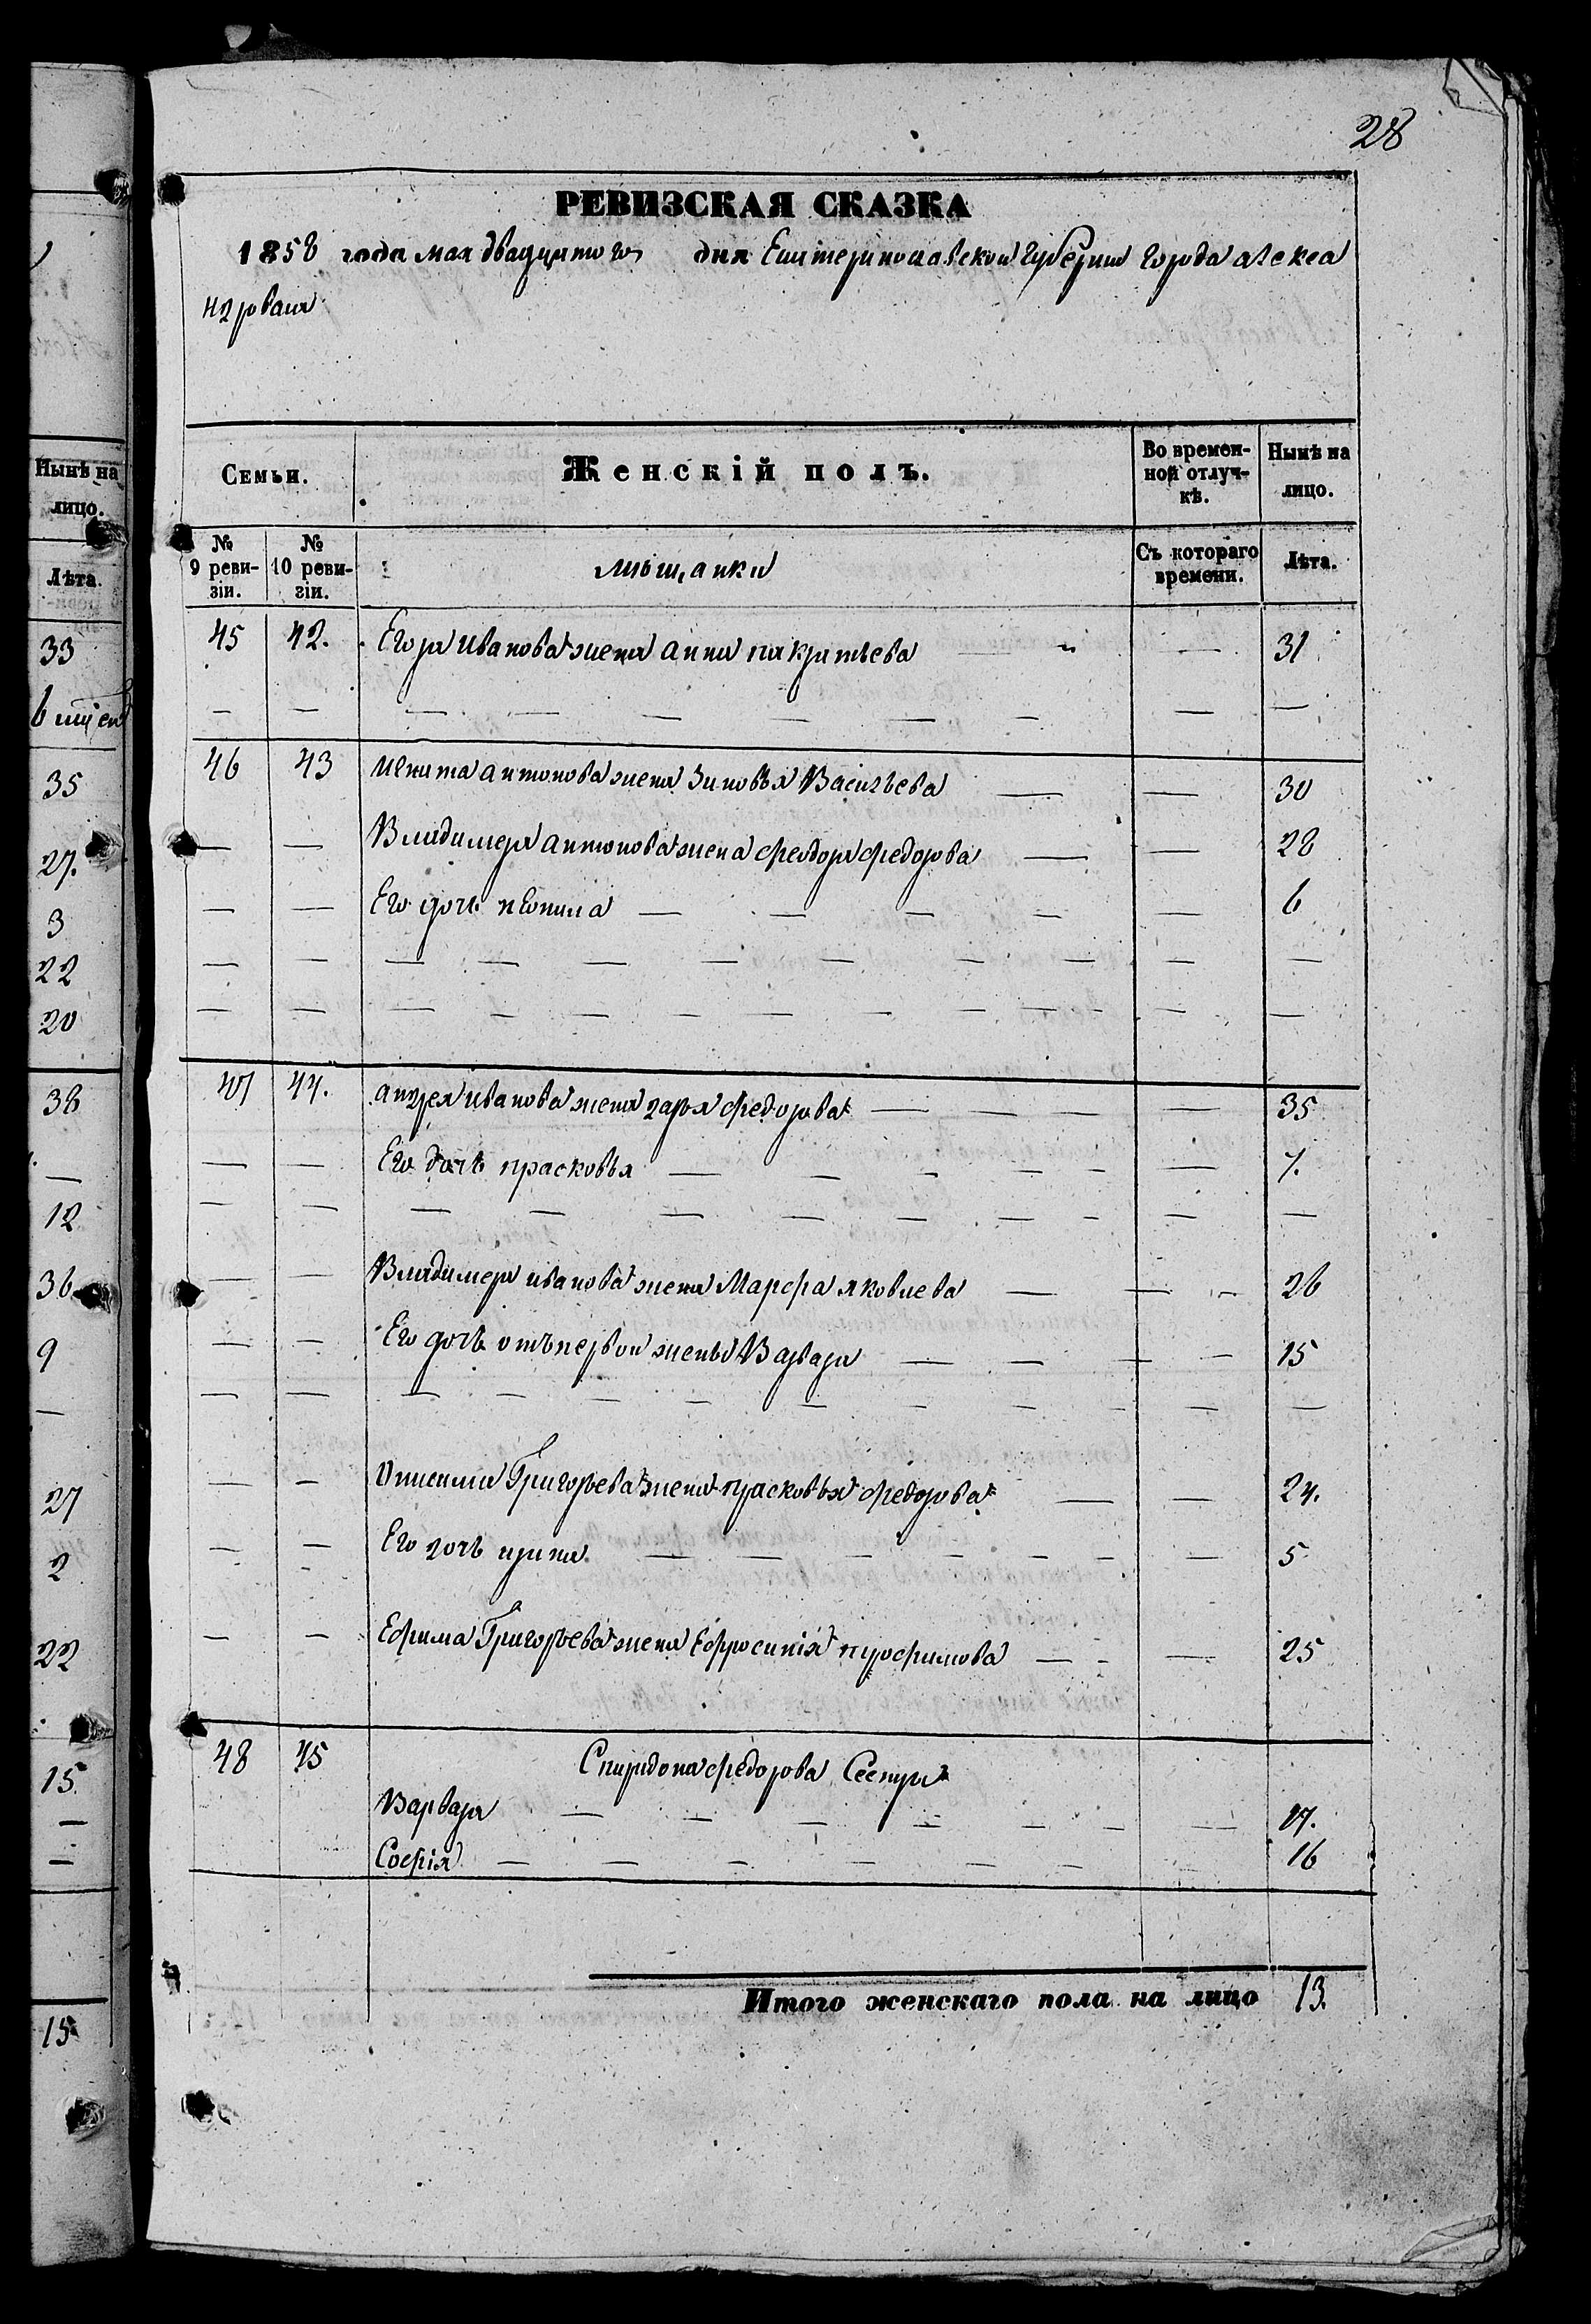 28
РЕВИЗСКАЯ СКАЗКА
1858 года мая двадцатого дня Екатеринославской Губернии города Алекса
ндровска
Семьи. Женскій полъ. Во времен-
ной отлуч-
кѣ. Нынѣ на
лицо.
№
9 реви-
зіи. №
10 реви-
зіи. мещанки Съ котораго
времени. Лѣта.
45 42. Егора Иванова жена Анна — — 31
— — — — — — — — — —
46 43 Никита Антонова жена Зиновья Васильева — — 30
— — Владимера Антонова жена Федора Федорова — — 28
— — Его дочь — — — — — 6
— — — — — — — — — — —
— — — — — — — — — — — —
47 44. Андрея Иванова жена дарья Федорова — — — — 35
— — Его дочь прасковья — — — — — — 7.
— — — — — — — — — — —
— — Владимера иванова жена Марфа яковлева — — — 26
— — Его дочь отъ первой жены Варвара — — — — 15
— — — — — — — — — — —
— — Григорьева жена прасковья Федорова — — 24.
— — Его дочь ирина — — — — — — — 5
— — Ефима Григорьева жена Ефросинія трофимова — — — 25
48 45 Спиридона Федорова Сестры
Варвара — — — — — — — 17.
Софія — — — — — — 16
Итого женскаго пола на лицо 13.
Нынѣ на
лицо.
Лѣта.
33
35
27.
3
22
20
38
—
12
36
9
—
27
2
22
15
—
—
15